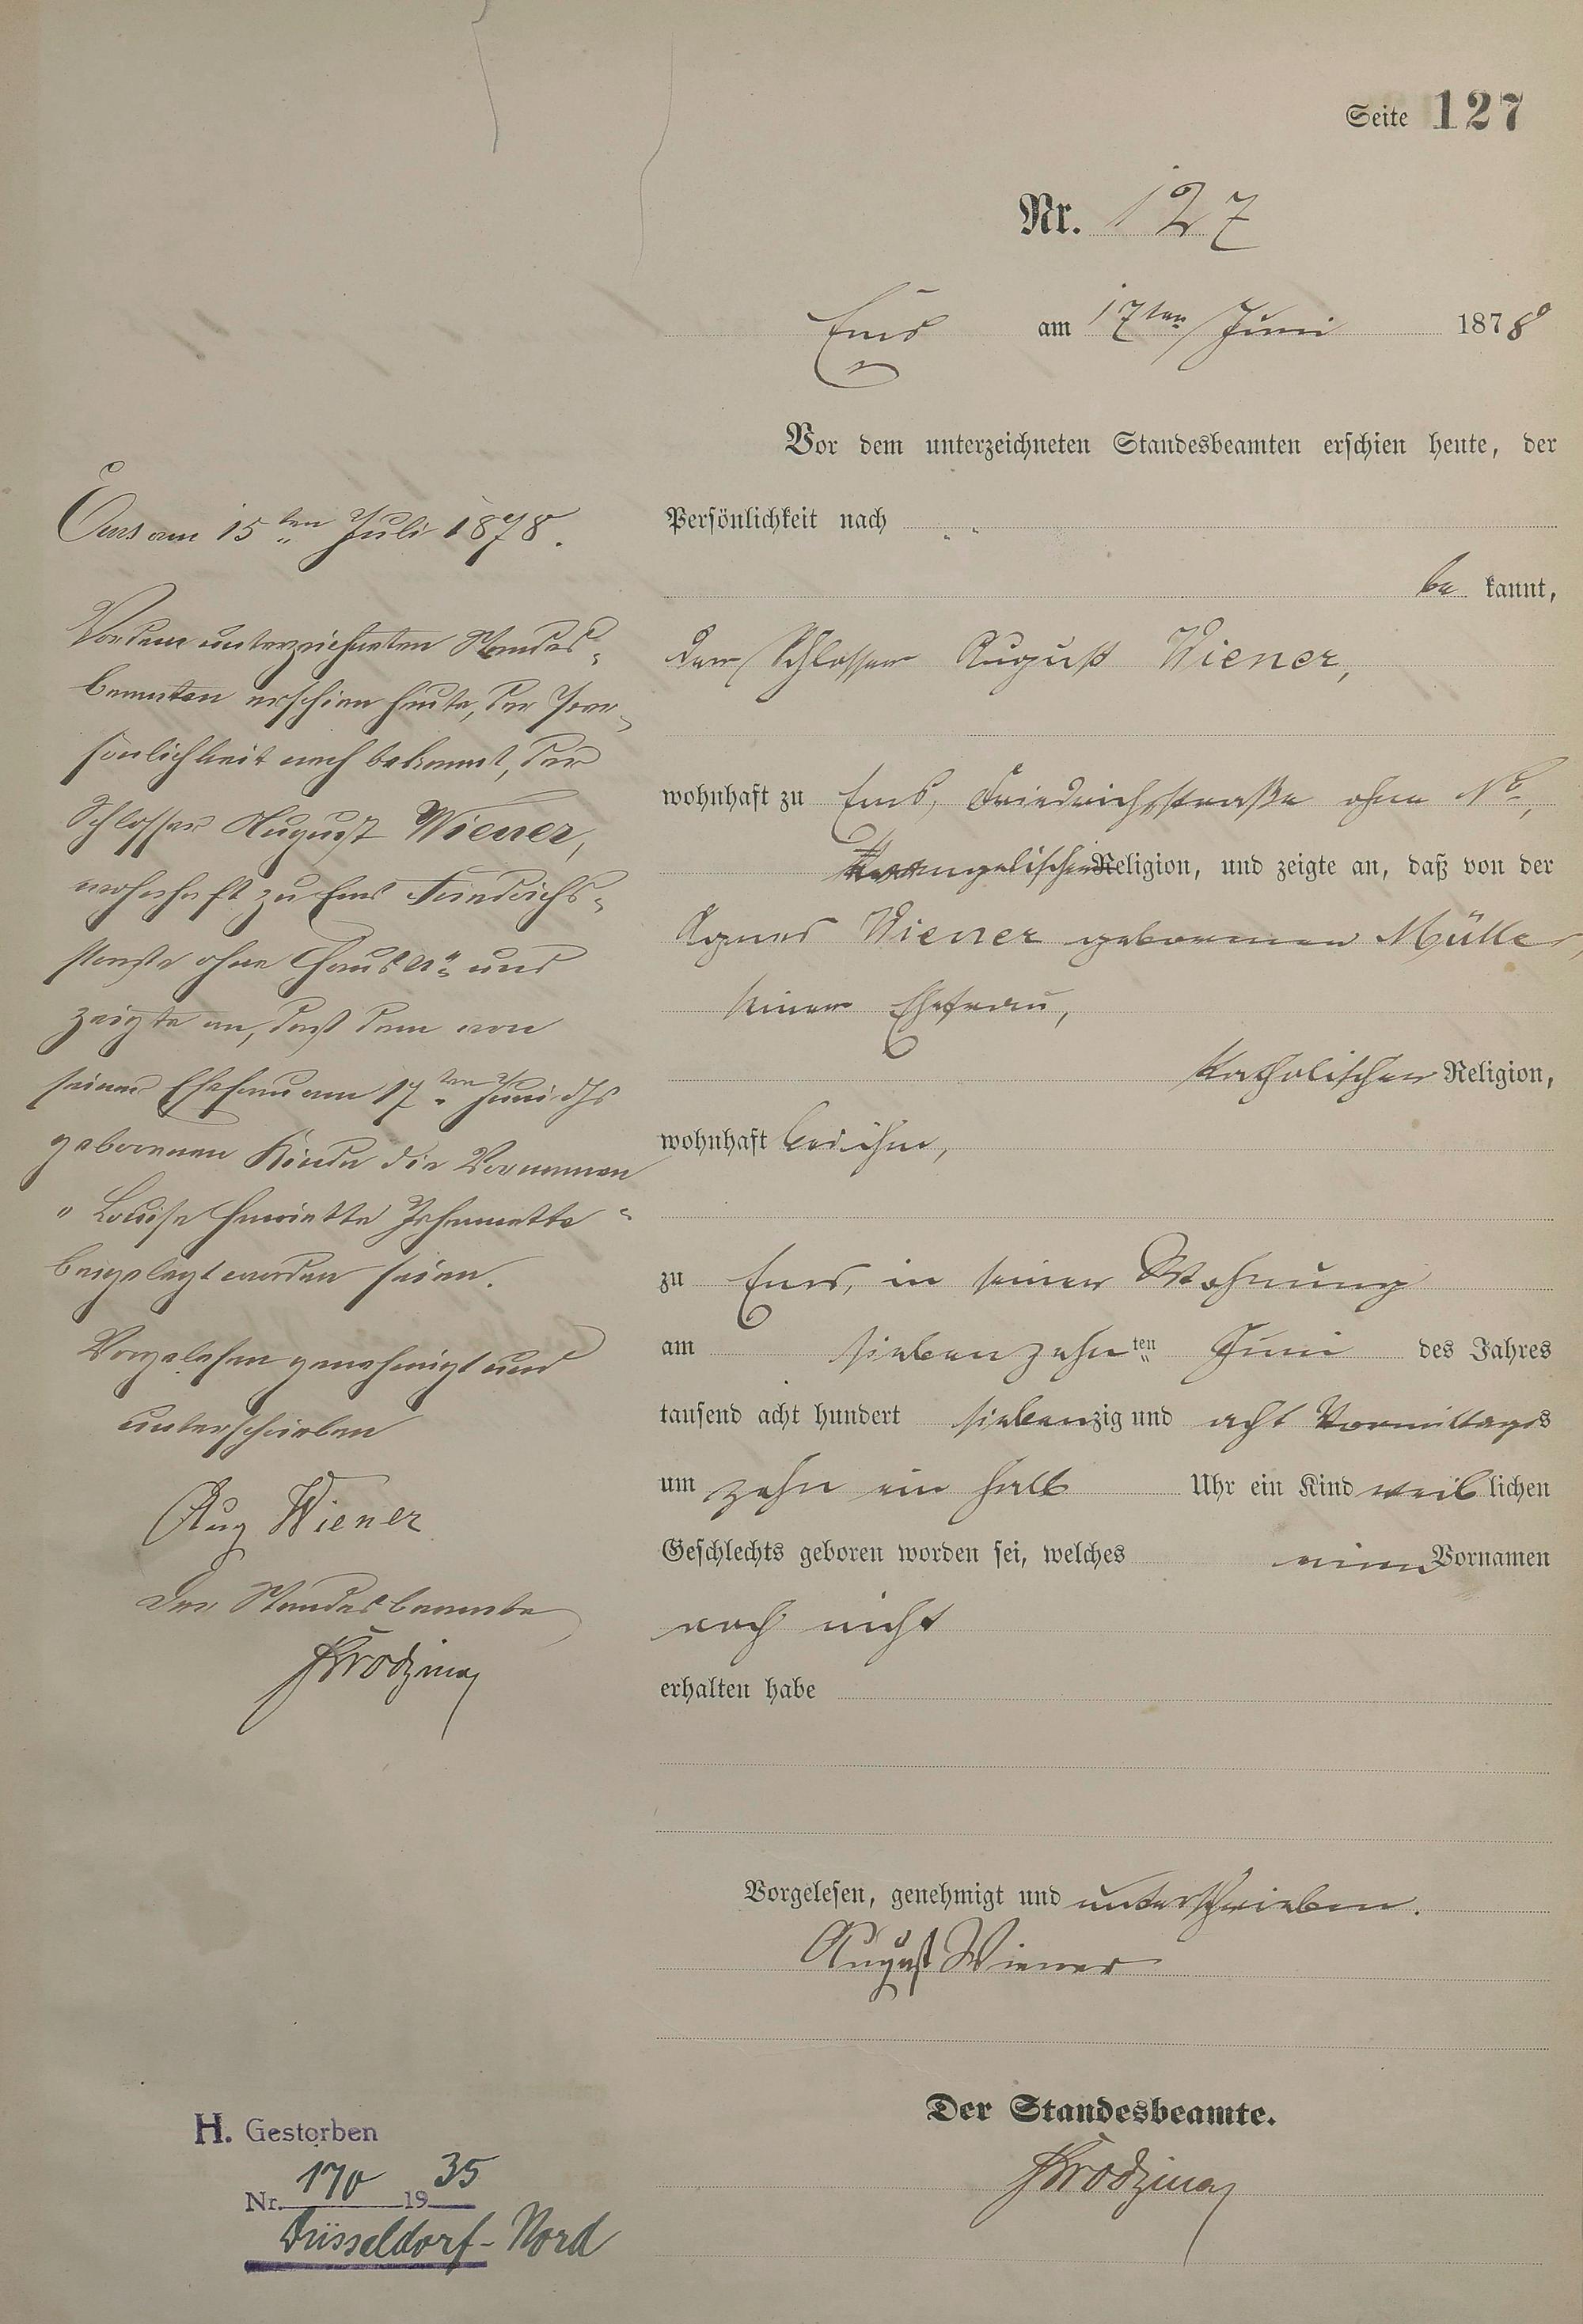 Seite 127
Nr. 127
Ems am 17ten Juni 1878
Vor dem unterzeichneten Standesbeamten erschien heute, der
Persönlichkeit nach
be kannt,
der Schlosser August Wiener,
wohnhaft zu Ems, Friedrichsstraße ohne No,
evangelischer Religion, und zeigte an, daß von der
Agnes Wiener geborenen Müller,
seiner Ehefrau,
katholischer Religion,
wohnhaft bei ihm,
zu Ems, in seiner Wohnung
am siebenzehnten Juni des Jahres
tausend acht hundert siebenzig und acht Vormittags
um zehn ein halb Uhr ein Kind weiblichen
Geschlechts geboren worden sei, welches einen Vornamen
noch nicht
erhalten habe
Vorgelesen, genehmigt und unterschrieben.
August Wiener
Der Standesbeamte.
Ems am 15ten Juli 1878.
Vor dem unterzeichneten Standes-
beamten erschien heute, der Per-
sönlichkeit nach bekannt, der
Schlosser August Wiener,
wohnhaft zu Ems Friedrichs-
straße ohne Haus No und
zeigte an, daß dem von
seiner Ehefrau am 17ten Juni ds Js
geborenen Kinde die Vornamen
"Louise Henriette Johannette"
beigelegt worden seien.
Vorgelesen genehmigt und
unterschrieben
Aug Wiener
Der Standesbeamte
H. Gestorben
Nr. 170 1935
Düsseldorf-Nord